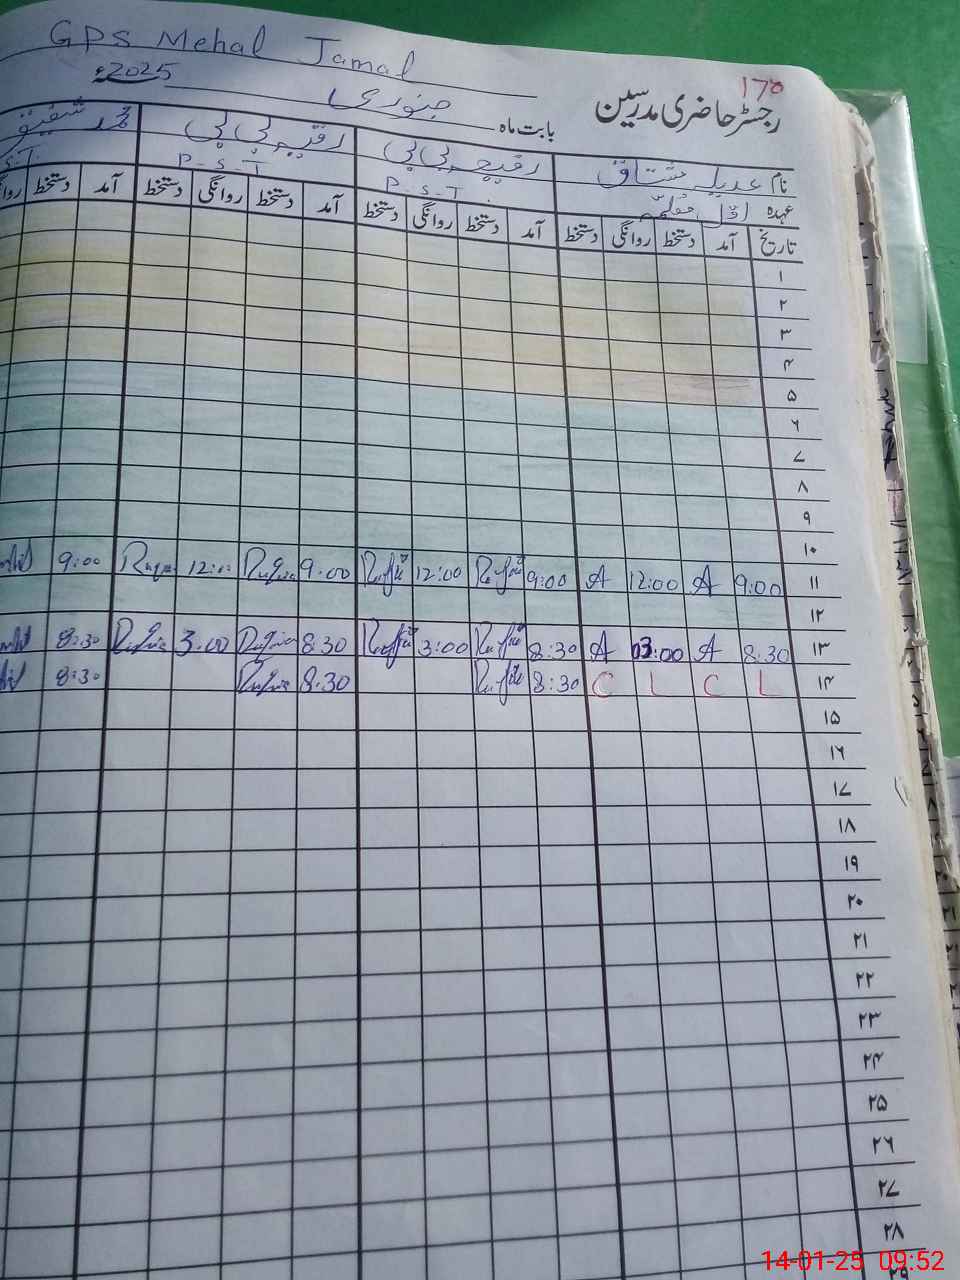 GPS Mehal Jamal
170
رجسٹر حاضری مدرسین بابت ماہ جنوری 2025ء
نام عدیلہ مشتاق رفیعہ بی بی رقیہ بی بی محمد شفیق
عہدہ اول معلمہ P.S.T P-S-T S.T.
تاریخ آمد دستخط روانگی دستخط آمد دستخط روانگی دستخط آمد دستخط روانگی دستخط آمد دستخط روانگی
۱
۲
۳
۴
۵
۶
۷
۸
۹
۱۰
۱۱ 9:00 A 12:00 A 9:00 Rafia 12:00 Rafia 9:00 Ruqia 12:00 Ruqia 9:00
۱۲
۱۳ 8:30 A 03:00 A 8:30 Rafia 3:00 Rafia 8:30 Ruqia 3:00 Ruqia 8:30
۱۴ L C L C 8:30 Rafia 8:30 Ruqia 8:30
۱۵
۱۶
۱۷
۱۸
۱۹
۲۰
۲۱
۲۲
۲۳
۲۴
۲۵
۲۶
۲۷
۲۸
۲۹
14-01-25 09:52